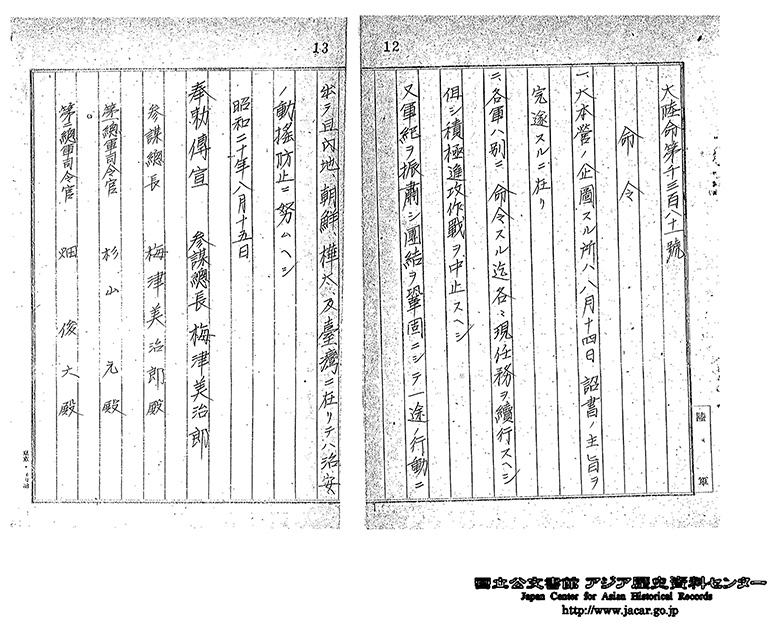 12
大陸命第千三百八十一號
命令
一大本營ノ企圖スル所ハ八月十四日 詔書ノ主旨ヲ
完遂スルニ在リ
二各軍ハ別ニ 命令スル迄各〻現任務ヲ續行スヘシ
但シ積極進攻作戰ヲ中止スヘシ
又軍紀ヲ振肅シ團結ヲ鞏固ニシテ一途ノ行動ニ
陸
軍
13
出ヲ且內地 朝鮮 樺太及臺灣ニ在リテハ治安
ノ動搖防止ニ努ムヘシ
昭和二十年八月十五日
奉勅傳宣 參謀總長 梅津美治郎
參謀總長 梅津美治郎殿
第一總軍司令官 杉山 元殿
第二總軍司令官 畑 俊六殿
国立公文書館 アジア歴史資料センター
Japan Center for Asian Historical Records
http://www.jacar.go.jp